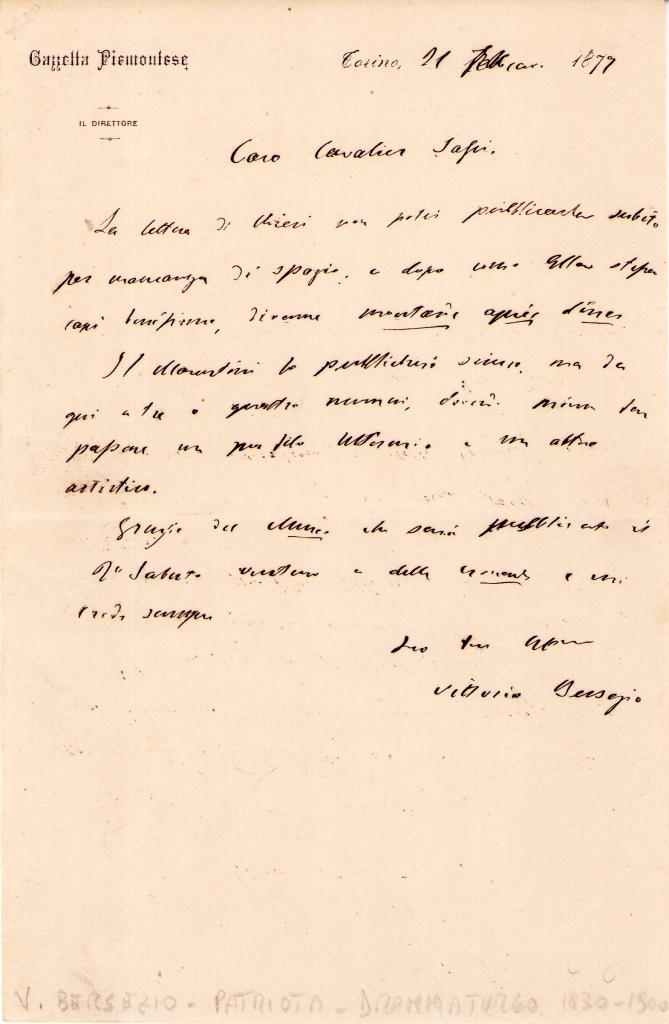 Gazzetta Piemontese
IL DIRETTORE
Torino, 21 Febbr. 1877
Caro Cavalier
La lettera di Chieri non potei pubblicarla subito
per mancanza di spazio, e dopo come Ella
capì benissimo, divenne moutarde après dîner
Il lo pubblicherò sicuro, ma da
qui a tre o quattro numeri, dovendo prima
passare un e un altro
artistico.
Grazie del che sarà pubblicato
Sabato venturo e delle e mi
creda sempre
Suo
Vittorio Bersezio
V. BERSEZIO - PATRIOTA - DRAMMATURGO 1830-1900